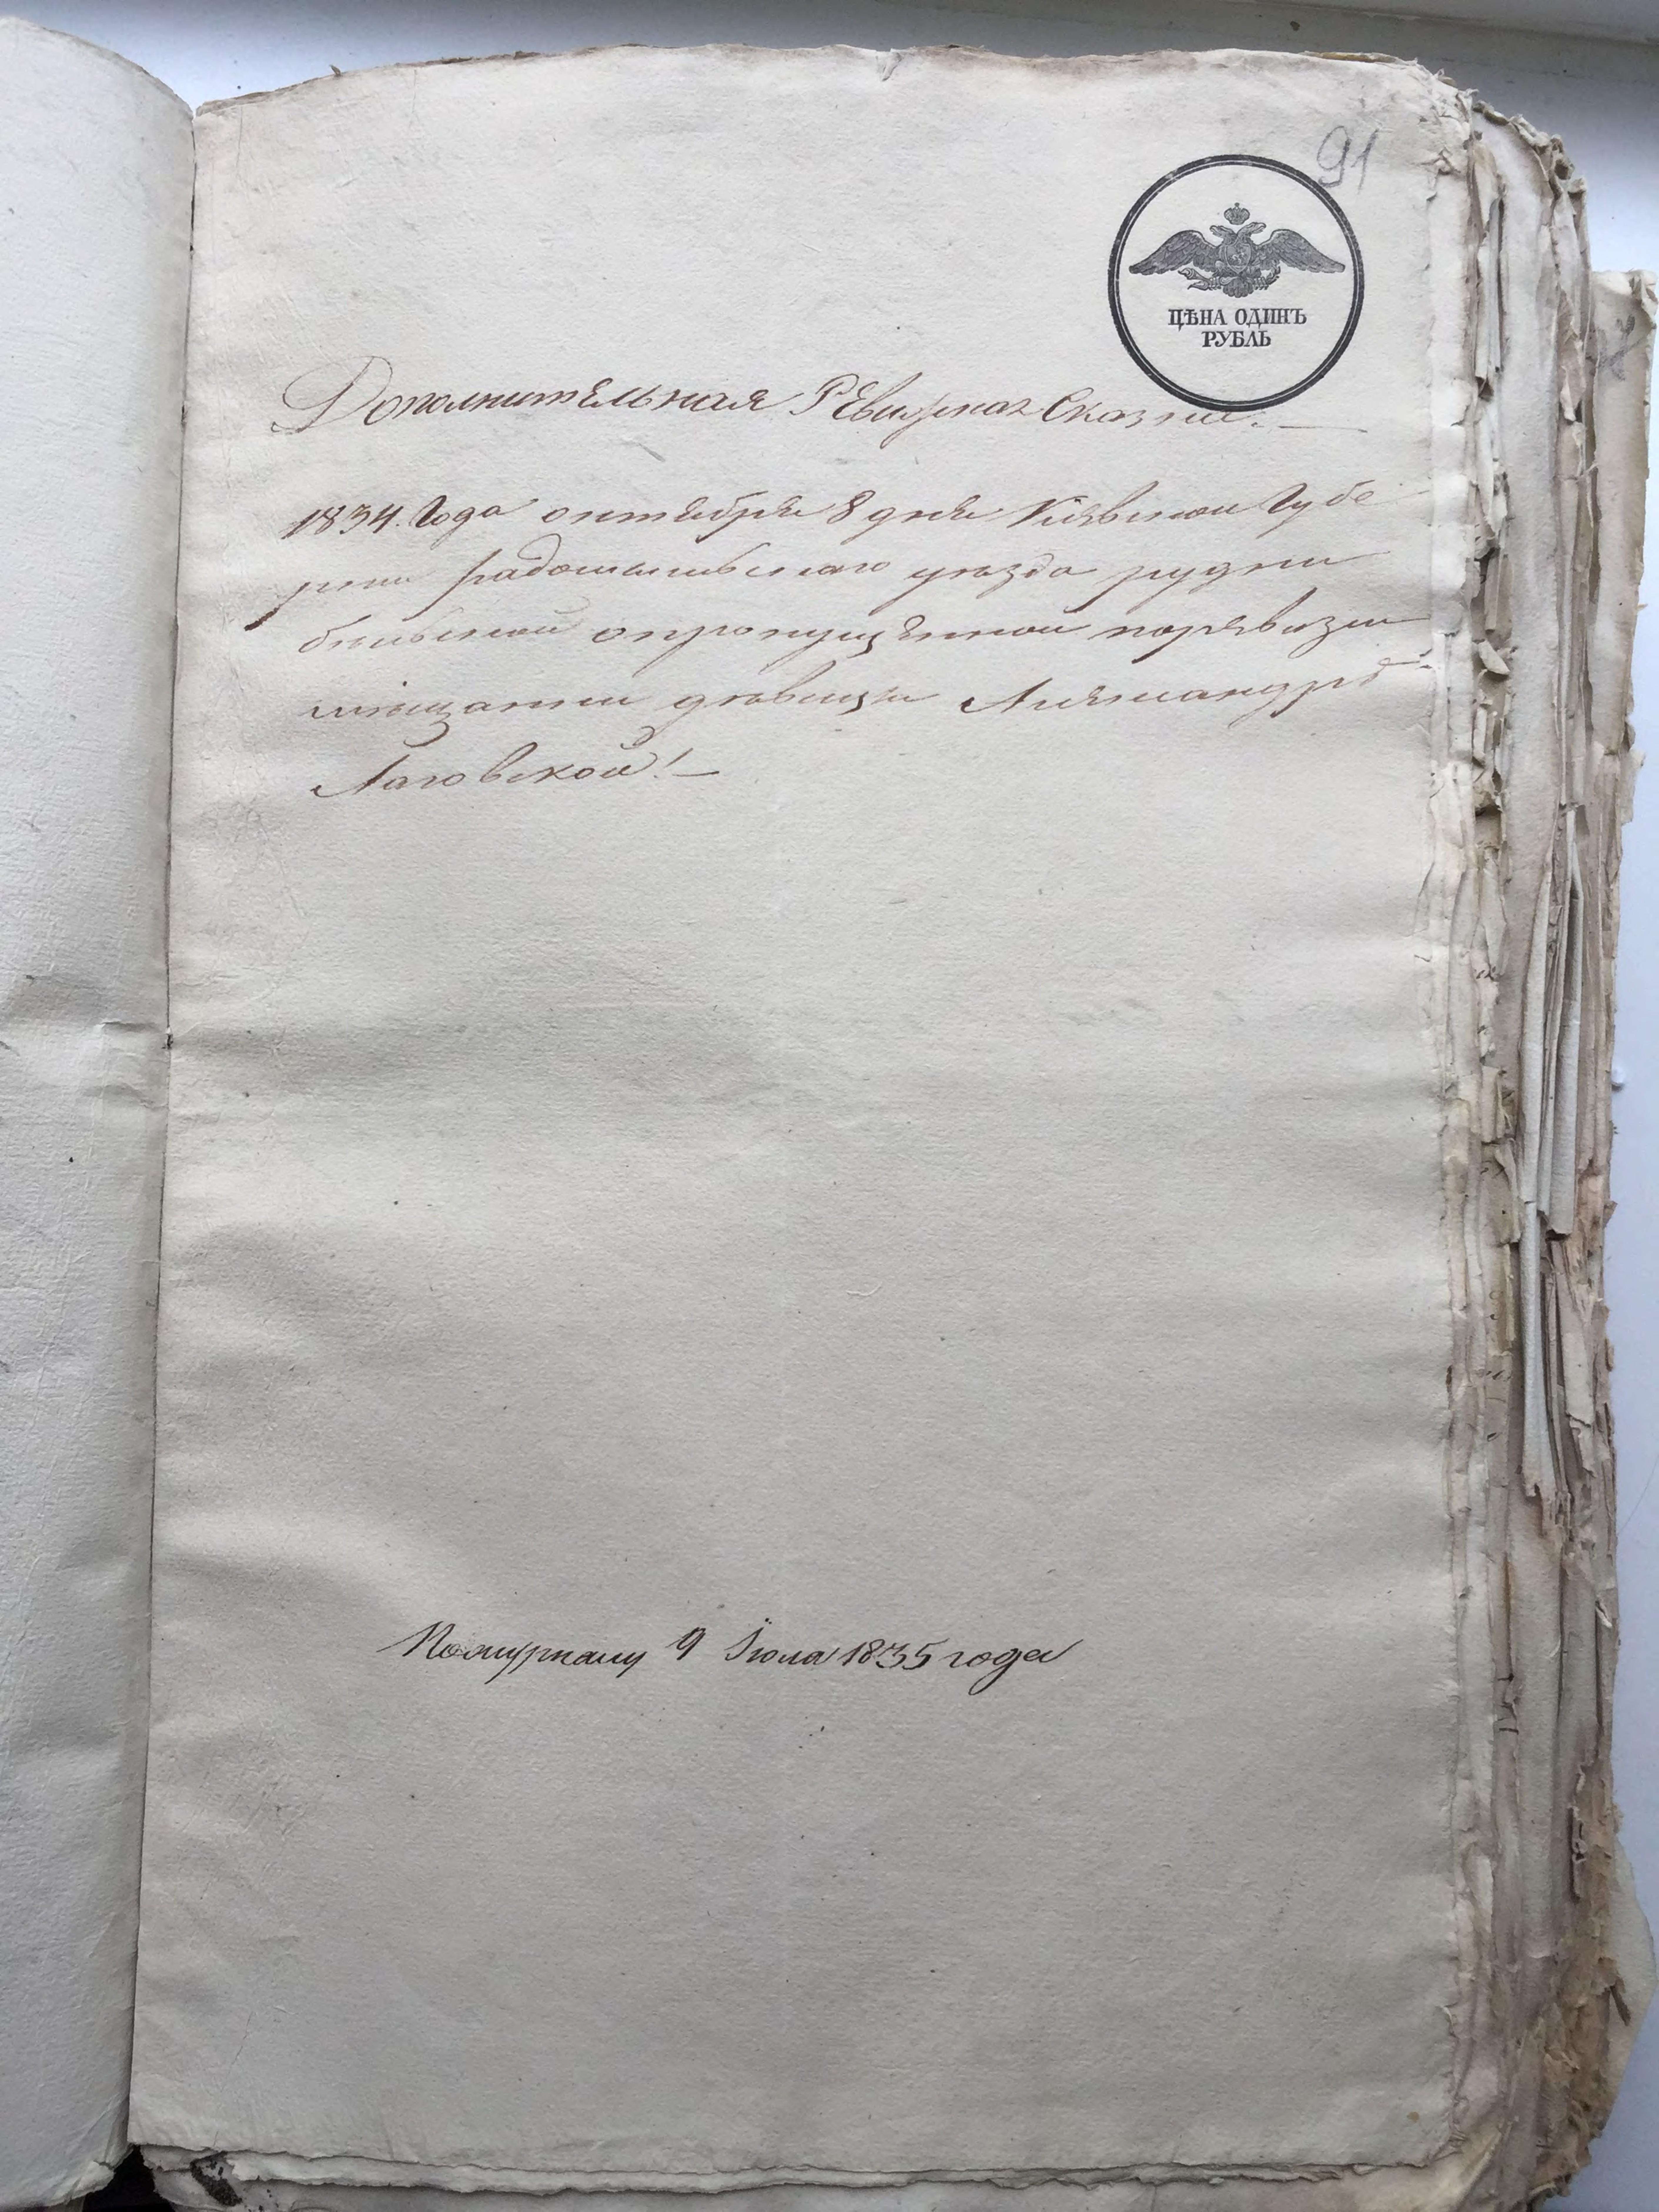 91
ЦѢНА ОДИНЪ
РУБЛЬ
Дополнительная Ревизская Сказка.
1834. Года октября 8 дня Киевской Губе
рнии радомысльскаго уезда рудни
опропущенной поревизии
мещанки девицы Александры
Лаговской!
9 Iюля 1835 года